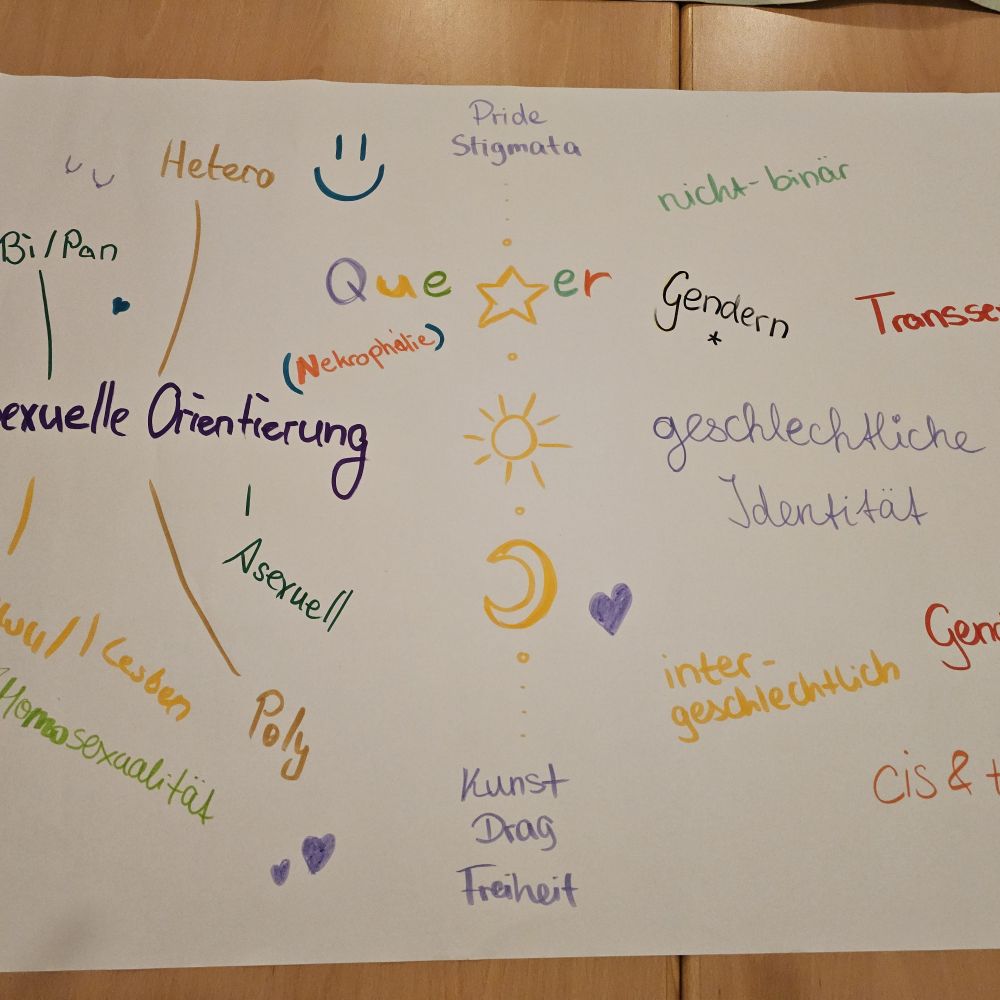 Pride
Stigmata
Hetero
nicht-binär
Bi/Pan
Queer
Gendern
*
Transse
(Nekrophilie)
exuelle Orientierung
geschlechtliche
Identität
Asexuell
wul/Lesben
Homosexualität
Poly
inter-
geschlechtlich
Gen
cis & t
Kunst
Drag
Freiheit